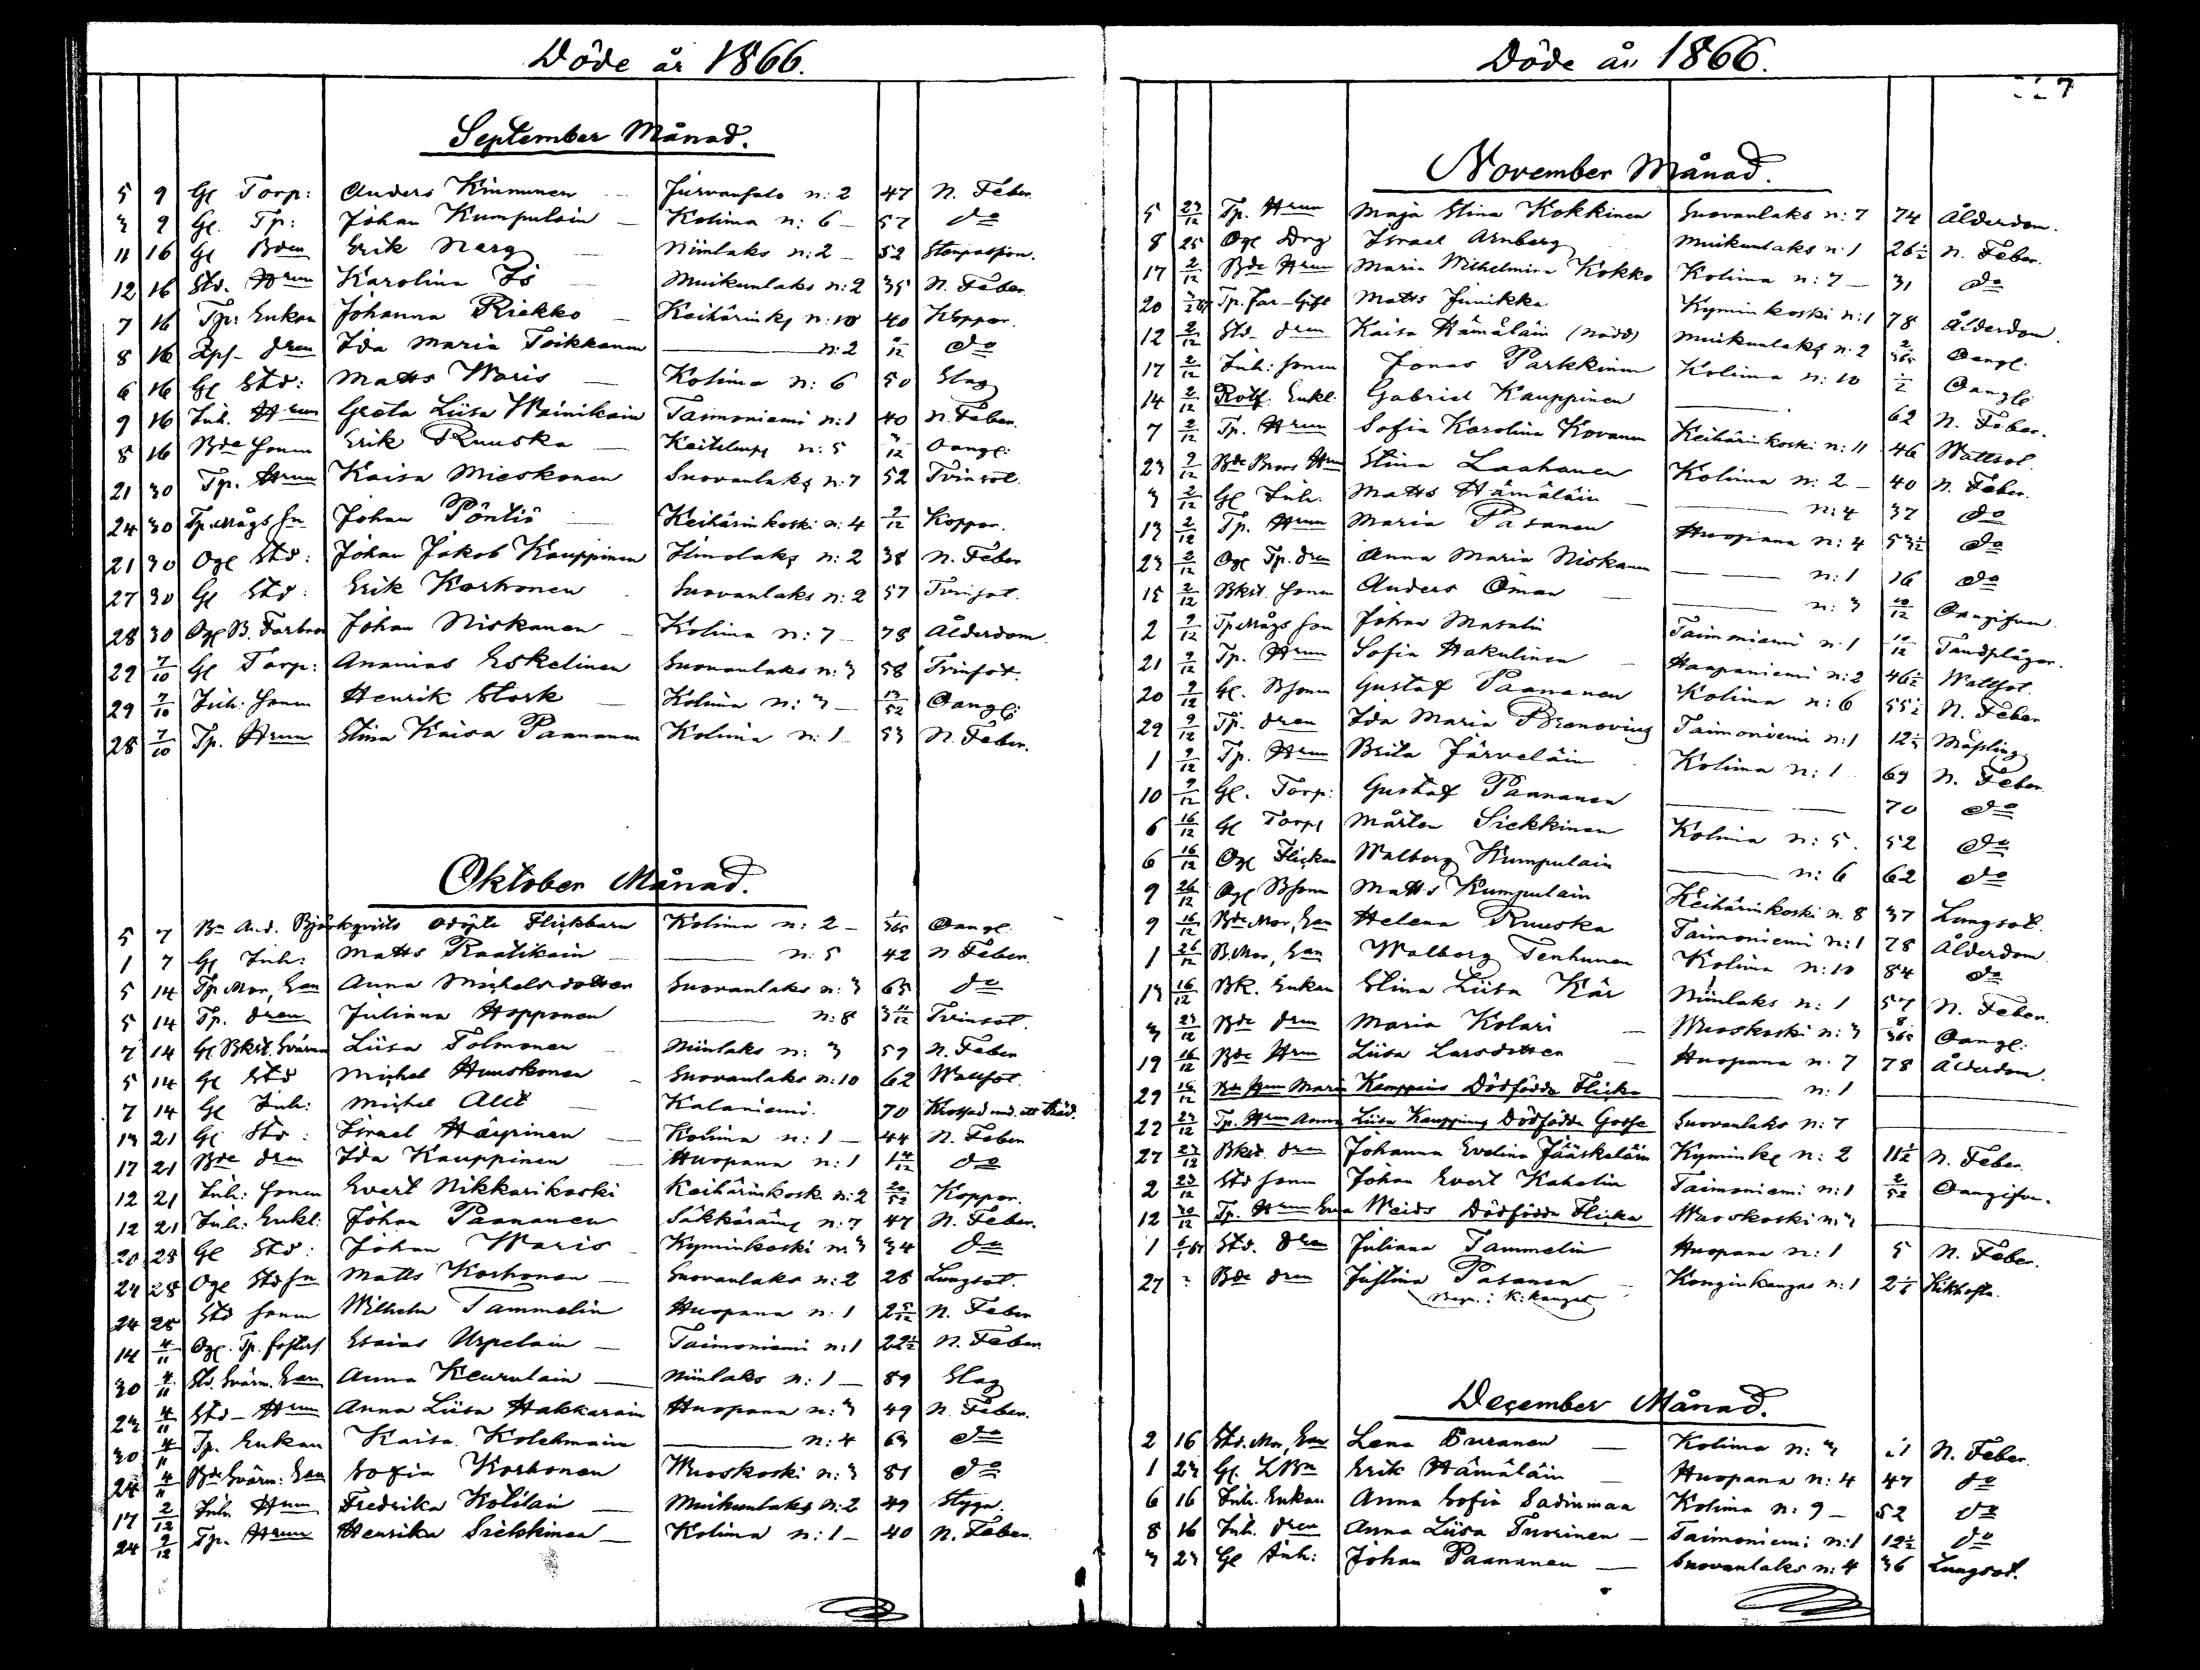 Döde år 1866.
September Månad.
5 9 Gl Torp: Anders Kinnunen Jurvansalo n: 2 47 N. Feber
3 9 Gl. Tp: Johan Kumpulain — Kolima n: 6 — 57 do
11 16 Gl Bden Erik Narg — Niinlaks n: 2 — 52
12 16 Std. Hrun Karolina Iö — Muikunlaks n: 2 35 N. Feber
7 16 Tp: Enkan Johanna Riekko — Keihärinkj n: 10 40 Koppor.
8 16 dren Ida Maria Toikkanen — n: 2 do
6 16 Gl Std: Matts Waris — Kolima n: 6 50 Slag
9 16 Inh. Hrun Greta Liisa Wainikain Taimoniemi n: 1 40 N. Feber.
8 16 Bde sonen Erik Ruuska — n: 5 3/12 Oangl:
21 30 Tp. Hrun Kaisa Mieskonen Suovanlaks n: 7 52 Tvinsot.
24 30 Tp. Mågs sn Johan Pöntiö — Keihärinkoski n: 4 2/12 Koppor.
21 30 Ogl Std: Johan Jakob Kauppinen Ilmolaks n: 2 38 N. Feber
27 30 Gl Std: Erik Korhonen Suovanlaks n: 2 57 Tvinsot.
28 30 Ogl B. Farbror Johan Niskanen — Kolima n: 7 — 78 Ålderdom
29 7/10 Gl Torp: Ananias Eskelinen Suovanlaks n: 3 58 Tvinsot.
29 7/10 Inh: sonen Henrik Stork — Kolima n: 3 — 13/52 Oangl:
28 7/10 Tp. Hrun Stina Kaisa Paananen Kolima n: 1 53 N. Feber.
Oktober Månad.
5 7 Bn And. Björkqvists odöpta Flickbarn Kolima n: 2 — 1/365 Oangl.
1 7 Gl Inh: Matts Raatikain — n: 5 42 N. Feber.
5 14 Tp Mor, Ean Anna Michelsdotter Suovanlaks n: 3 65 do
5 14 Tp. dren Juliana Hopponen — n: 8 Tvinsot.
7 14 Gl Bkst. Svärm Liisa Tolmonen Niinlaks n: 3 59 N. Feber
5 14 Gl Std Michel Huuskonen — Suovanlaks n: 10 62 Wattsot.
7 14 Gl Inh: Michel Alit — Kalaniemi. 70 Krossad und. ett träd.
13 21 Gl Std: Israel Häyrinen — Kolima n: 1 — 44 N. Feber
17 21 Bde dren Ida Kauppinen — Huopana n: 1 do
12 21 Inh: sonen Evert Nikkarikoski Keihärinkosk. n: 2 20/52 Koppor.
12 21 Inh: Enkl: Johan Paananen n: 7 47 N. Feber.
20 28 Gl Std: Johan Waris — Kyminkoski n: 3 34 do
24 28 Ogl Std sn Matts Korhonen — Suovanlaks n: 2 28 Lungsot.
24 28 Std sonen Wilhelm Tammelin Huopana n: 1 2 5/12 N. Feber
14 4/11 Ogl. Tp. Esaias Urpelain — Taimoniemi n: 1 22 1/2 N. Feber.
30 4/11 Std. Svärm. Ean Anna Keurulain — Niinlaks n: 1 — 89 Slag
23 4/11 Std — Hrun Anna Liisa Hakkarain Huopana n: 3 49 N. Feber.
30 4/11 Tp. Enkan Kaisa Kolehmain — n: 4 63 do
24 4/11 Bde Svärm: Ean Sofia Korhonen Wuoskoski n: 3 81 do
17 2/12 Inh. Hrun Fredrika Kotilain — Muikunlaks n: 2 49 Stygn.
24 2/12 Tp. Hrun Henrika Siekkinen — Kolima n: 1 — 40 N. Feber.
Döde år 1866.
7
November Månad.
5 23/12 Tp. Hrun Maja Stina Kokkinen Suovanlaks n: 7 74 Ålderdom.
8 25 Ogl Drg Israel Arnberg Muikunlaks n: 1 26 1/2 N. Feber.
17 2/12 Bde Hrun Maria Wilhelmina Kokko Kolima n: 7 — 31 do
20 Tp. Far — Gift Matts Junikka Kyminkoski n: 1 78 Ålderdom.
12 2/12 Std — dren Kaisa Hämäläin (nödd) Muikunlaks n: 2 2/365 Oangl.
17 2/12 Inh: sonen Jonas Parkkinen Kolima n: 10 1/2 Oangl:
14 2/12 Rotf. Enkl. Gabriel Kauppinen — 62 N. Feber.
7 2/12 Tp. Hrun Sofia Karolina Kovanen Keihärinkoski n: 11 46 Wattsot.
23 2/12 Bde Brors Hrun Stina Laahanen Kolima n: 2 — 40 N. Feber.
3 2/12 Gl Inh. Matts Hämäläin — n: 4 37 do
13 2/12 Tp. Hrun Maria Pasanen Huopana n: 4 53 1/2 do
23 2/12 Ogl Tp. dren Anna Maria Niskanen — n: 1 16 do
15 2/12 Bkst. sonen Anders Öman — n: 3 10/12 Oangifven.
2 9/12 Tp Mågs son Johan Masalin Taimoniemi n: 1 10/12 Tandplågor.
21 9/12 Tp. Hrun Sofia Hakulinen — Haapaniemi n: 2 46 1/2 Wattsot.
20 9/12 Gl. Bsonen Gustaf Paananen Kolima n: 6 55 1/2 N. Feber
29 9/12 Tp. dren Ida Maria Branovius Taimoniemi n: 1 Mässling
1 9/12 Tp. Hrun Brita Järveläin Kolima n: 1 69 N. Feber.
10 9/12 Gl. Torp: Gustaf Paananen — 70 do
6 16/12 Gl Torp: Mårten Siekkinen Kolima n: 5. 52 do
6 16/12 Ogl Flickan Walborg Kumpulain — n: 6 62 do
9 26/12 Ogl Bsonen Matts Kumpulain Keihärinkoski n. 8 37 Lungsot.
9 16/12 Bde Mor, Ean Helena Ruuska Taimoniemi n: 1 78 Ålderdom.
1 26/12 B. Mor, Ean Walborg Tenhunen Kolima n: 10 84 do
13 16/12 Bk. Enkan Stina Liisa Kär Niinlaks n: 1 57 N. Feber.
3 23/12 Bde dren Maria Kolari — Wuoskoski n: 3 8/365 Oangl:
19 16/12 Bde Hrun Liisa Larsdotter — Huopana n: 7 78 Ålderdom.
29 16/12 Bde Hrun Maria Kemppins Dödfödda Flicka — n: 1
22 23/12 Tp. Hrun Anna Liisa Kauppins Dödfödda Gosse Suovanlaks n: 7
27 23/12 Bkst. dren Johanna Evelina Jääskeläin Kyminkj n: 2 11 1/2 N. Feber.
2 23/12 Std sonen Johan Evert Kahelin Taimoniemi n: 1 2/52 Oangifven.
12 30/12 Tp. Hrun Eva Weids Dödfödda Flicka Wuoskoski n: 3
1 Std. dren Juliana Tammelin Huopana n: 1 5 N. Feber.
27 Bde dren Justina Pasanen — Konginkangas n: 1 Kikhosta.
Begr. i K: kangas
December Månad.
2 16 Std. Mor, Ean Lena Puranen — Kolima n: 3 N. Feber.
1 23 Gl. LBn Erik Hämäläin — Huopana n: 4 47 do
6 16 Inh. Enkan Anna Sofia Sadinmaa Kolima n: 9 — 52 do
8 16 Inh. dren Anna Liisa Tuorinen — Taimoniemi n: 1 12 1/2 do
3 23 Gl Inh: Johan Paananen — Suovanlaks n: 4 36 Lungsot.